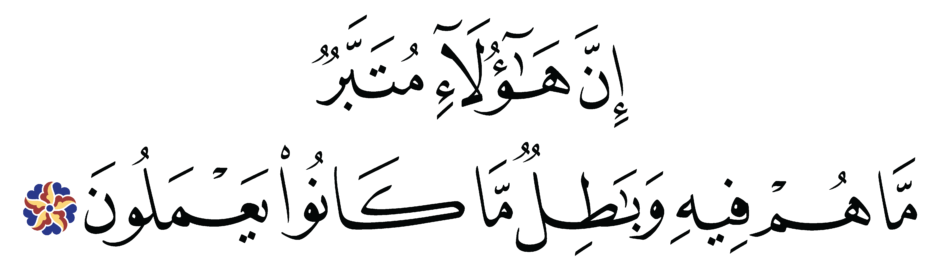 إِنَّ هَٰٓؤُلَآءِ مُتَبَّرٌۭ
مَّا هُمْ فِيهِ وَبَٰطِلٌۭ مَّا كَانُوا۟ يَعْمَلُونَ